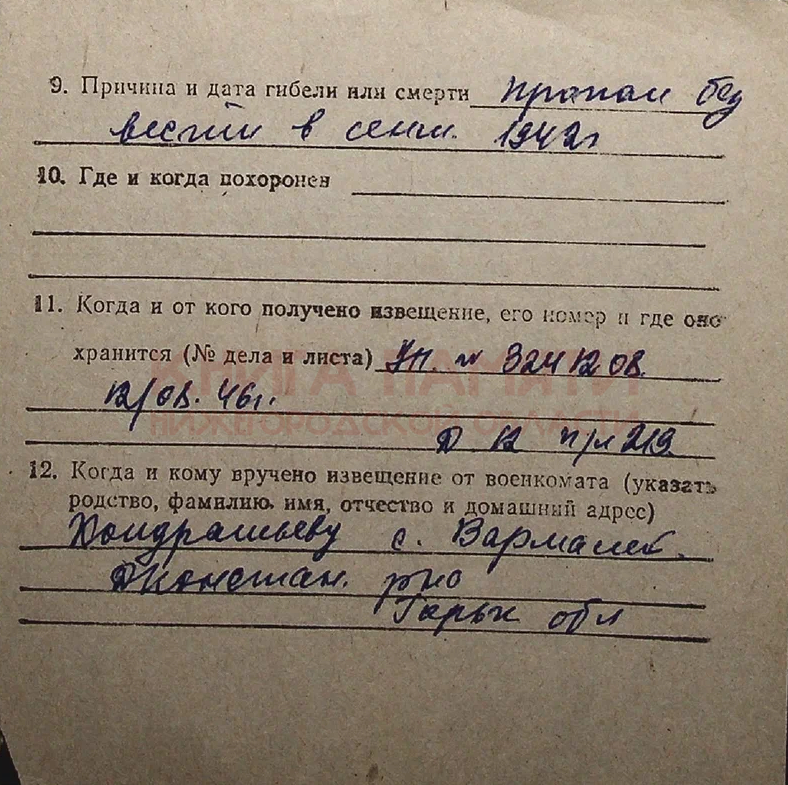 9. Причина и дата гибели или смерти пропал без
вести в сент. 1942г
10. Где и когда похоронен
11. Когда и от кого получено извещение, его номер и где оно
хранится (№ дела и листа) Уп. № 3241208
КНИГА ПАМЯТИ
12/08. 46г.
НИЖЕГОРОДСКОЙ ОБЛАСТИ
Д 12 п/л 219
12. Когда и кому вручено извещение от военкомата (указать
родство, фамилию, имя, отчество и домашний адрес)
Кондрашеву с. Вармалей.
Дконстан. рно
Горьк обл